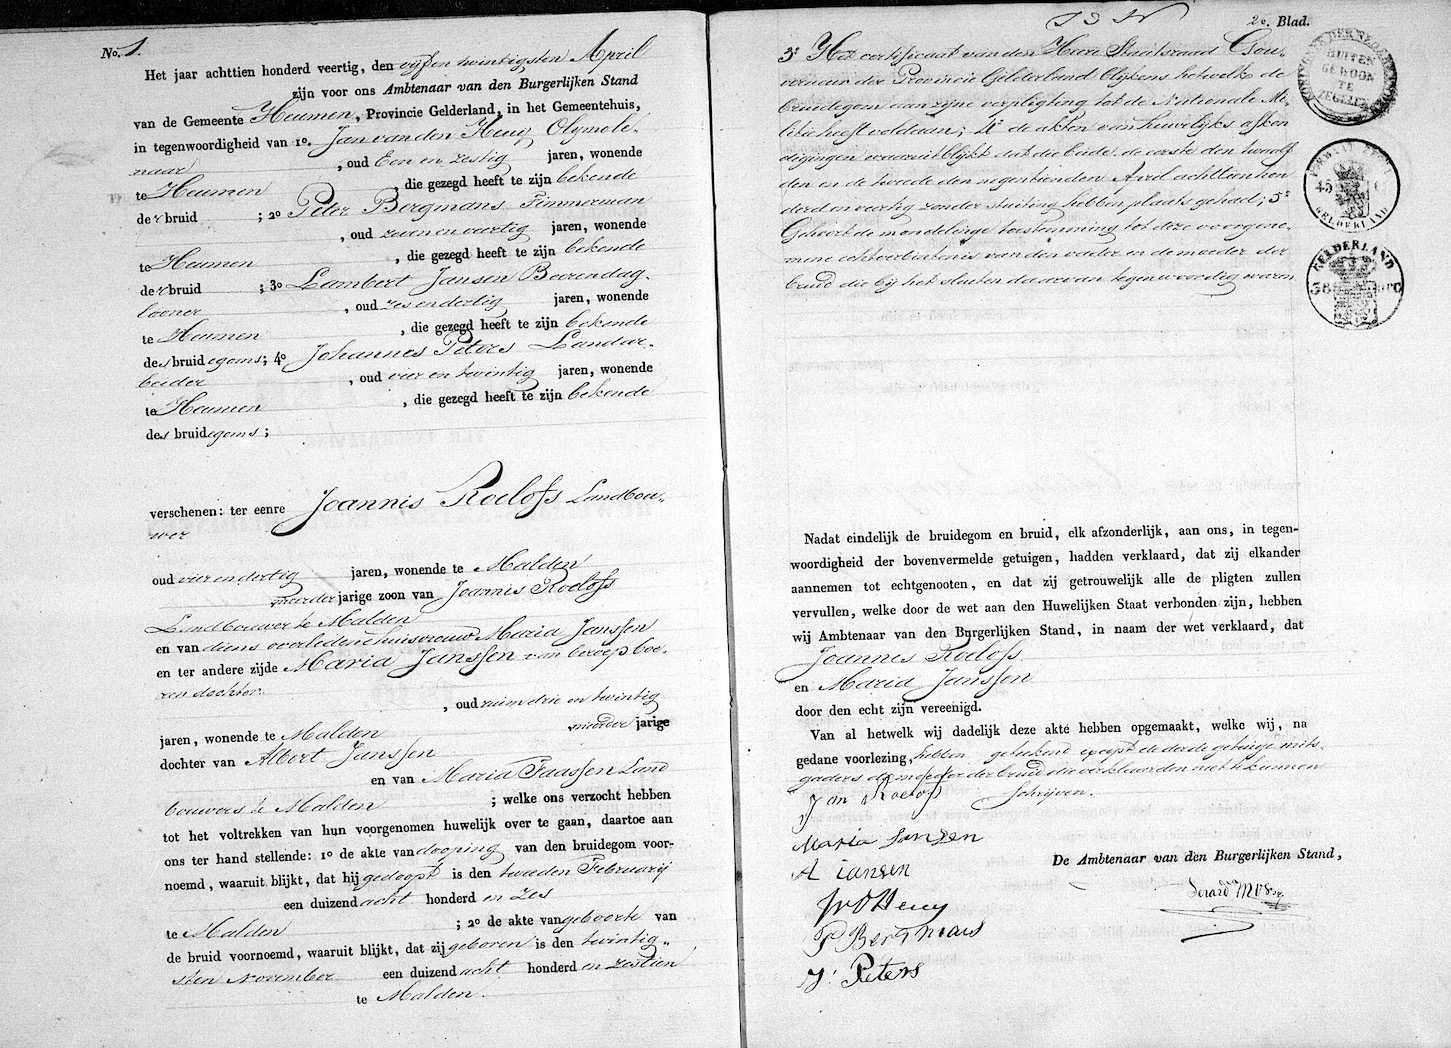 No. 1.
Het jaar achttien honderd veertig, den vijf en twintigsten April
zijn voor ons Ambtenaar van den Burgerlijken Stand
van de Gemeente Heumen, Provincie Gelderland, in het Gemeentehuis,
in tegenwoordigheid van 1o. Jan van den Heuy Olijmole-
naar , oud Een en zestig jaren, wonende
te Heumen , die gezegd heeft te zijn bekende
der bruid ; 2o Peter Bergmans Timmerman
, oud zeven en veertig jaren, wonende
te Heumen , die gezegd heeft te zijn bekende
der bruid ; 3o Lambert Jansen Boerendag-
looner , oud zes en dertig jaren, wonende
te Heumen , die gezegd heeft te zijn bekende
des bruidegoms; 4o Johannes Peters Landar-
beider , oud vier en twintig jaren, wonende
te Heumen , die gezegd heeft te zijn bekende
des bruidegoms;
verschenen: ter eenre Joannis Roelofs Landbou-
wer
oud vier en dertig jaren, wonende te Malden
meerderjarige zoon van Joannis Roelofs
Landbouwer te Malden
en van diens overledene huisvrouw Maria Janssen
en ter andere zijde Maria Janssen van beroep boe-
ren dochter
, oud ruim drie en twintig
jaren, wonende te Malden meerder jarige
dochter van Albert Janssen
en van Maria Faassen Land
bouwers te Malden ; welke ons verzocht hebben
tot het voltrekken van hun voorgenomen huwelijk over te gaan, daartoe aan
ons ter hand stellende: 1o de akte van dooping van den bruidegom voor-
noemd, waaruit blijkt, dat hij gedoopt is den tweeden Februarij
een duizend acht honderd en zes
te Malden ; 2o de akte van geboorte van
de bruid voornoemd, waaruit blijkt, dat zij geboren is den twintig-
sten November een duizend acht honderd en zestien
te Malden.
2e. Blad.
3o Het certificaat van den Heere Staatsraad Gou-
verneur der Provincie Gelderland blijkens hetwelk de
bruidegom aan zijne verpligting tot de Nationale Mi-
litie heeft voldaan; 4o de akten van huwelijks afkon
digingen waaruit blijkt dat die beide, de eerste den twaalf
den en de tweede den negentienden April achttien hon
derd en veertig zonder stuiting hebben plaats gehad; 5o
Gehoord de mondelinge toestemming tot deze voorgeno-
mene echtverbintenis van den vader en de moeder der
bruid die bij het sluiten daarvan tegenwoordig waren
BUITEN
GEWOON
TE
ZEGELEN
45
GELDERLAND
GELDERLAND
38
Nadat eindelijk de bruidegom en bruid, elk afzonderlijk, aan ons, in tegen-
woordigheid der bovenvermelde getuigen, hadden verklaard, dat zij elkander
aannemen tot echtgenooten, en dat zij getrouwelijk alle de pligten zullen
vervullen, welke door de wet aan den Huwelijken Staat verbonden zijn, hebben
wij Ambtenaar van den Burgerlijken Stand, in naam der wet verklaard, dat
Joannes Roelofs
en Maria Janssen
door den echt zijn vereenigd.
Van al hetwelk wij dadelijk deze akte hebben opgemaakt, welke wij, na
gedane voorlezing, hebben geteekend except de derde getuige mits-
gaders de moeder der bruid die verklaarden niet te kunnen
schrijven.
Jan Roelofs
Maria Jansen
A iansen
JvdHeuy
P Bergmans
J: Peters
De Ambtenaar van den Burgerlijken Stand,